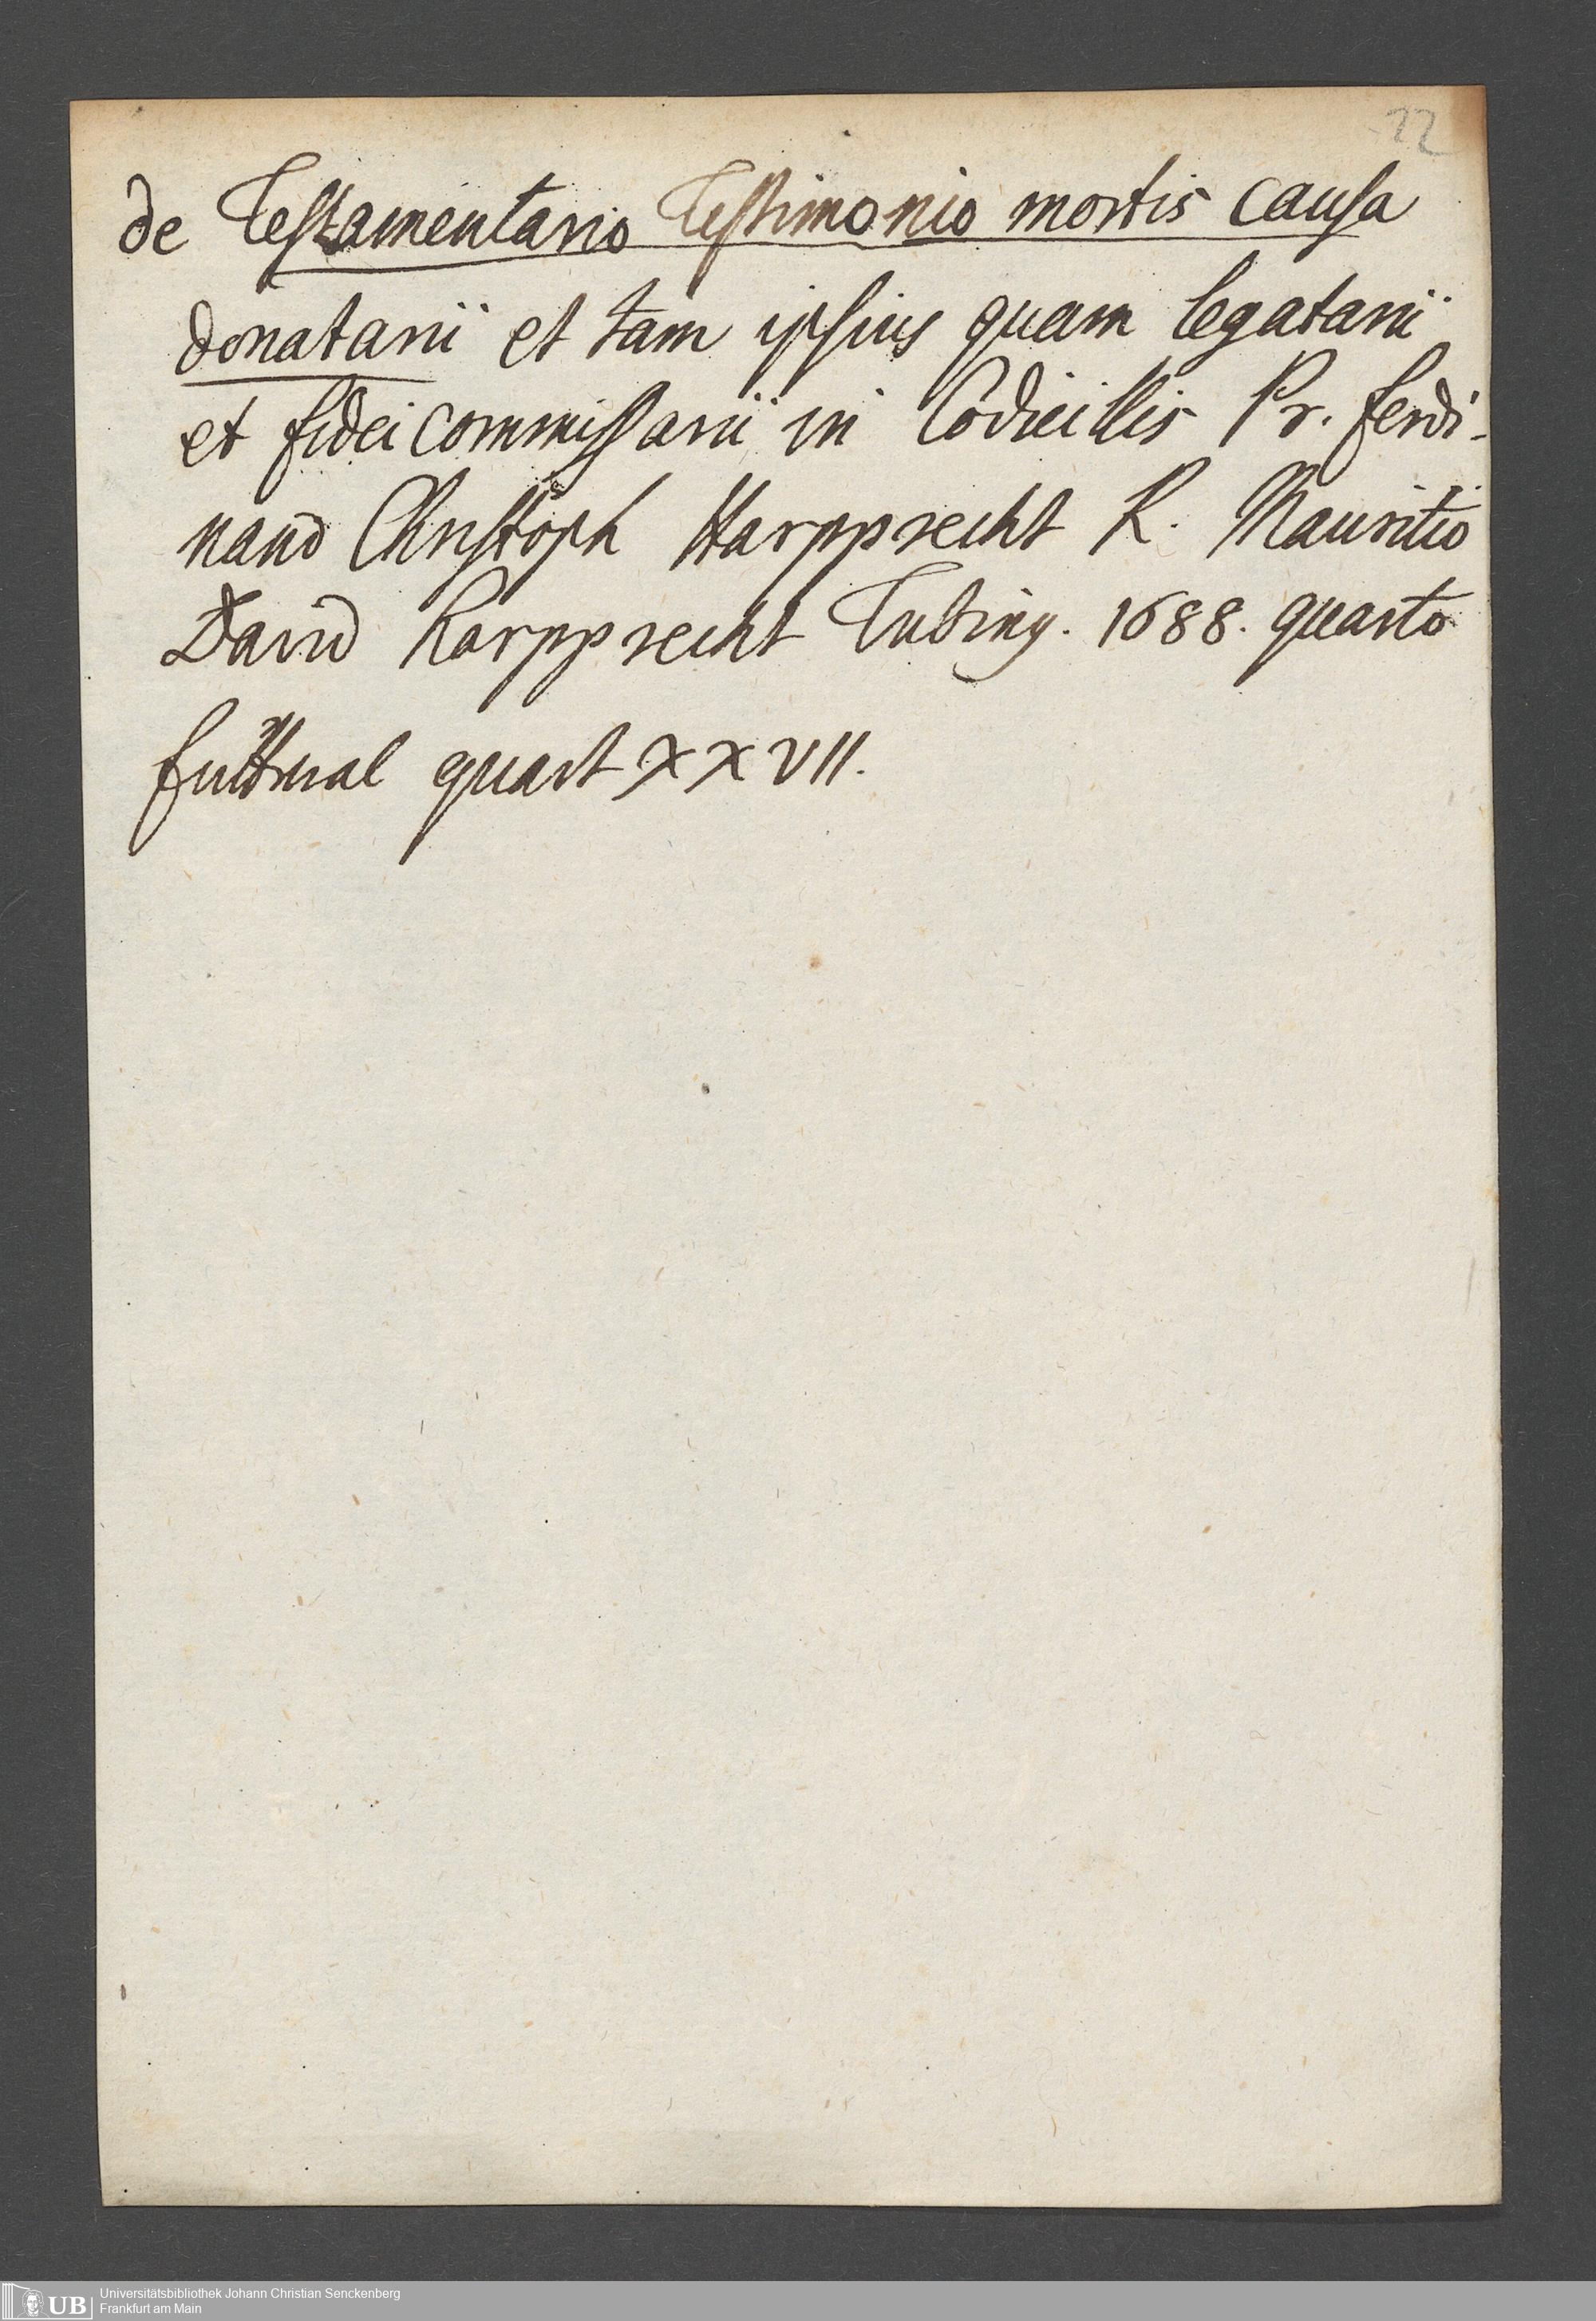 22
de Testamentario Testimonio mortis causa
donatarii et tam ipsius quam legatarii
et fidei commissarii in Codicillis Pr. ferdi-
nand Christoph Harpprecht R. Mauritio
David Harpprecht Tubing. 1688. quarto
quart XXVII.
UB
Universitätsbibliothek Johann Christian Senckenberg
Frankfurt am Main